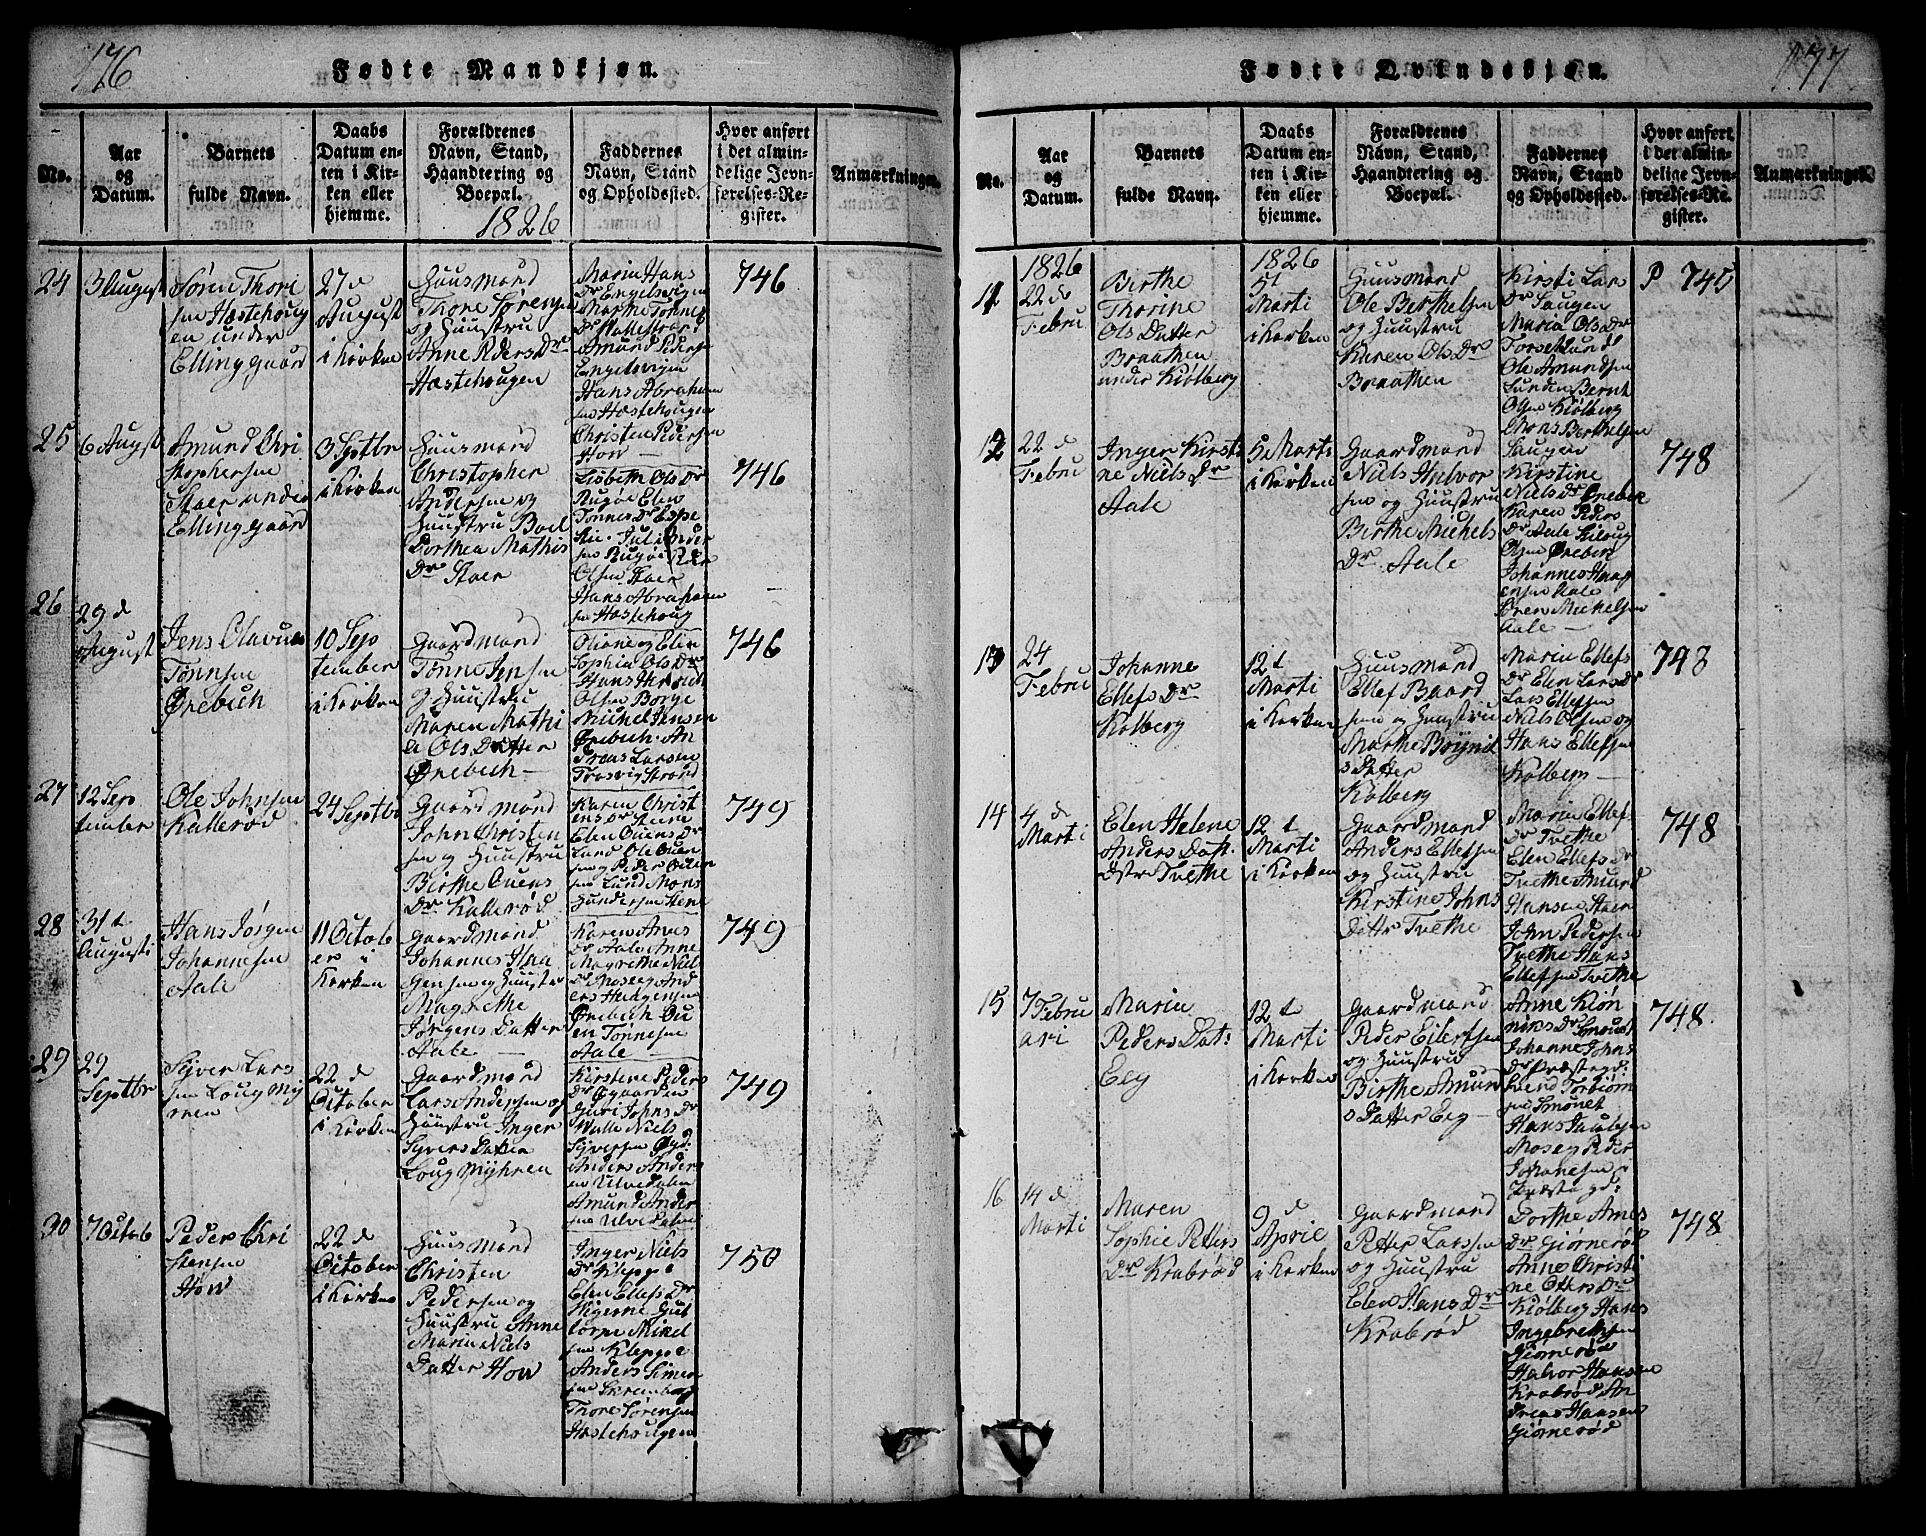 176
Fødte Mandkjøn.
No.
Aar
og
Datum.
Barnets
fulde Navn.
Daabs
Datum en-
ten i Kir-
ken eller
hjemme.
Forældrenes
Navn, Stand,
Haandtering og
Boepæl.
1826
Faddernes
Navn, Stand
og Opholdssted.
Hvor anført
i det almin-
delige Jevn-
førelses-Re-
gister.
Anmærkninger.
24
3 August
Søren Thore
sen Hæstehoug
en under
Ellinggaard
27 d
August
i Kirken
Huusmand
Thore Sørensen
og Huustru
Anne PedersDr
Hæstehougen
Maria Hans
Dr Engelsvigen
Marthe Tønnes
Amund Peder
Engelsvigen
Hans Abraham
sen Hæstehougen
Christen Pedersen
How
746
25
6 August
Amund Chri
stophersen
Staer under
Ellinggaard
3 Septbr
i Kirken
Huusmand
Christopher
Andersen og
Huustru Boel
Dorthea Mathis
Dr Staer
Lisbeth Ols Dr
Rugøe Elen
Tønnes Dr
sen Rugøe
Olsen Staer
Hans Abraham
sen Hæstehoug
746
26
29 d
August
Jens Olavus
Tønnsen
Ørebech
10 Sep
tember
i Kirken
Gaardmand
Tønne Jensen
og Huustru
Maren Mathi
e Ols Datter
Ørebech
Oliane og Elen
Sophia Ols Dr
Olsen Borge
Michel Jensen
Ørebech. An
dreas Larsen
Trosvig Strand
746
27
12 Sep
tember
Ole Johnsen
Kallerød
24 Septbr
Gaardmand
John Christen
sen og Huustru
Birthe Ouens
Dr Kallerød
Karen Christ
ens Dr
Elen Ouens Dr
Lund Ole Ouen
sen og Peder Ouen
sen Lund Mons
Gundersen
749
28
31 t
Augusti
Hans Jørgen
Johannesen
Aale
1 Octob
er i
Kirken
Gaardmand
Johannes Haa
gensen og Huustr
Magrethe
Jørgens Datter
Aale
Karen Arves
Dr Aale Anne
Magrethe Niel
Dr Moseg And
ers Helgesen
Ørebech Ou
en Tønnesen
Aale
749
29
29
Septbr
Syver Lars
sen Loug My
ren
22 d
October
i Kirken
Gaardmand
Lars Andersen og
Huustru Inger
Syvers Datter
Loug Myhren
Kirstine Peders
Dr Øgaarden
Guri Johns Dr
Walle Niels
Syversen Øgd.
Anders Anders
en Ulvedalen
Amund Ander
sen Ulvedalen
749
30
7 Octob
Peder Chri
stensen
How
22 d
October
i Kirken
Huusmand
Christen
Pedersen og
Huustru Anne
Maria Niels
Datter How
Inger Niels
Dr Kleppe
Elen Elefs Dr
Torpe Mikel
sen Kleppe
Anders Simen
Thore Sørensen
Hæstehougen
750
177
Fødte Qvindekjøn.
No.
Aar
og
Datum.
Barnets
fulde Navn.
Daabs
Datum en-
ten i Kir-
ken eller
hjemme.
Forældrenes
Navn, Stand,
Haandtering og
Boepæl.
Faddernes
Navn, Stand
og Opholdssted.
Hvor anført
i det almin-
delige Jevn-
førelses-Re-
gister.
Anmærkninger.
11
1826
22 d
Febru
Birthe
Thorine
Ols Datter
Braathen
under Kiølberg
1826
5t
Marti
i Kirken
Huusmand
Ole Berthelsen
og Huustru
Karen Ols Dr
Braathen
Kirsti Lars
Dr Haugen
Maria Ols Dr
Torseklund
Ole Amundsen
Lunden Bernt
Olsen Kiølberg
Mons Berthelsen
Haugen
P 745
12
22 d
Febru
Inger Kirsti
ne Niels Dr
Aale
5 Marti
i Kirken
Gaardmand
Niels Halvor
sen og Huustru
Birthe Michels
Dr Aale
Kirstine
Niels Dr Ørebek
Karen Peders
Dr Aale
Olsen Ørebech
Johannes Haag
ensen Aale
Øren Michelsen
Aale
748
13
24
Febru
Johanne
Ellefs Dr
Kølberg
12 t
Marti
i Kirken
Huusmand
Ellef Baard
sen og Huustru
Marthe Brynil
s Datter
Kølberg
Maria Ellefs
Dr Elen Lars Dr
Lars Ellefsen
Niels Olsen og
Hans Ellefsen
Kølberg
748
14
4 d
Marti
Elen Helene
Anders Datt.
Tvethe
12 t
Marti
i Kirken
Gaardmand
Anders Ellefsen
og Huustru
Kirstine Johns
Datter Tvethe
Maria Ellef
Dr Tvethe
Elen Ellefs Dr
Tvethe Amund
Hansen Staer
John Pedersen
Tvethe Hans
Ellefsen Tvethe
748
15
7 Febru
ari
Maria
Peders Dat:
Eeg
12 t
Marti
i Kirken
Gaardmand
Peder Eilertsen
og Huustru
Birthe Amund
s Datter Eeg
Anne Kiøn
niks Dr Smouet
Johanne Johns
Dr Præstegd:
Torbiørn
sen Smouet
Hans Paulsen
Moseg Peder
Johanesen
Præstegd:
748.
16
14 d
Marti
Maren
Sophie Petters
Dr Krabrød
9 d
Aprie
i Kirken
Gaardmand
Petter Larssen
og Huustru
Elen Hans Dr
Krabrød
Dorthe Arnes
Dr Giørnerød
Anne Christi
ne Otters Dr
Kiølberg Hans
Ingebretsen
Giørnerød
Halvor Hansen
Krabrød An
dreas Hansen
Giørnerød
748